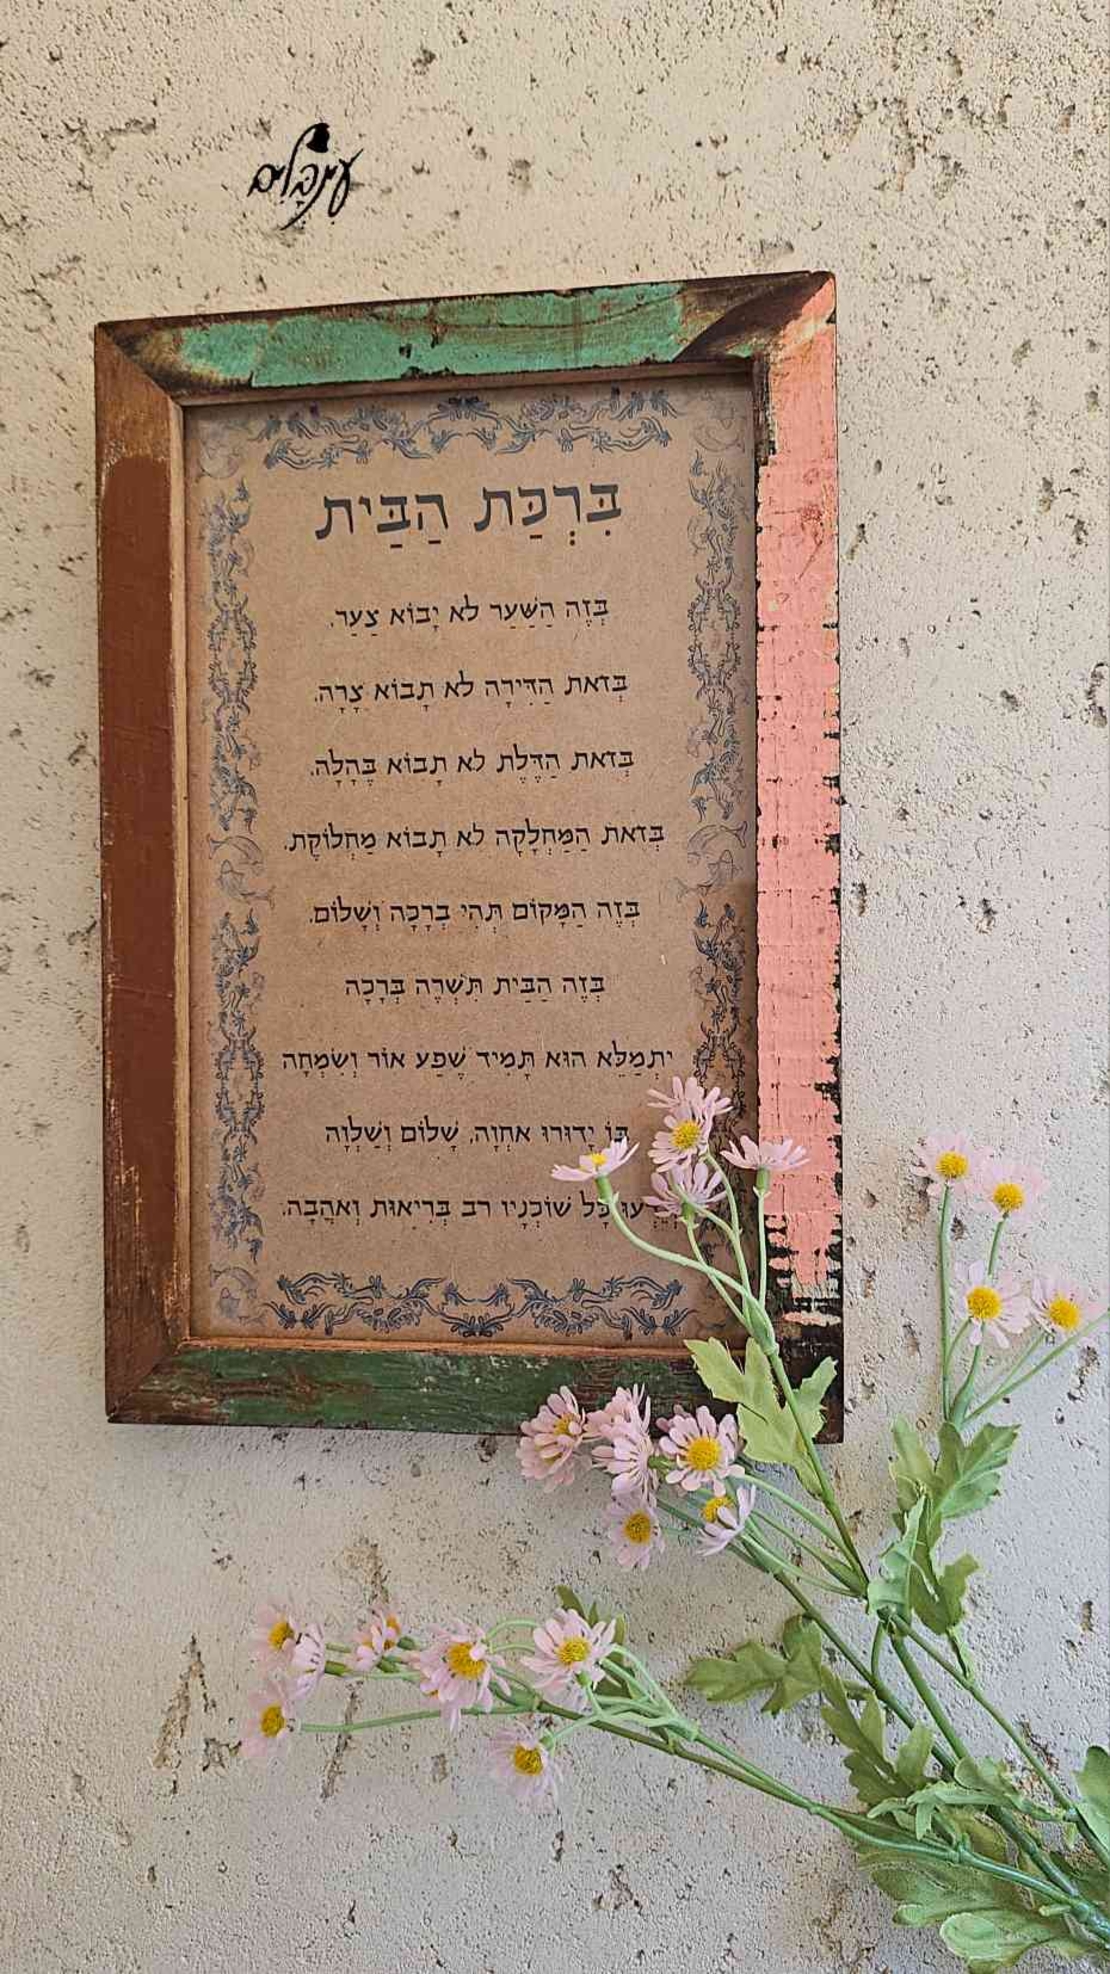 בִּרְכַּת הַבַּיִת
בְּזֶה הַשַּׁעַר לֹא יָבוֹא צַעַר.
בְּזֹאת הַדִּירָה לֹא תָבוֹא צָרָה.
בְּזֹאת הַדֶּלֶת לֹא תָבוֹא בֶּהָלָה.
בְּזֹאת הַמַּחְלָקָה לֹא תָבוֹא מַחְלוֹקֶת.
בְּזֶה הַמָּקוֹם תְּהִי בְרָכָה וְשָׁלוֹם.
בְּזֶה הַבַּיִת תִּשְׁרֶה בְּרָכָה
יִתְמַלֵּא הוּא תָּמִיד שֶׁפַע אוֹר וְשִׂמְחָה
בּוֹ יָדוּרוּ אַחְוָה, שָׁלוֹם וְשַׁלְוָה
כָּל שׁוֹכְנָיו רב בְּרִיאוּת וְאהֲבָה.